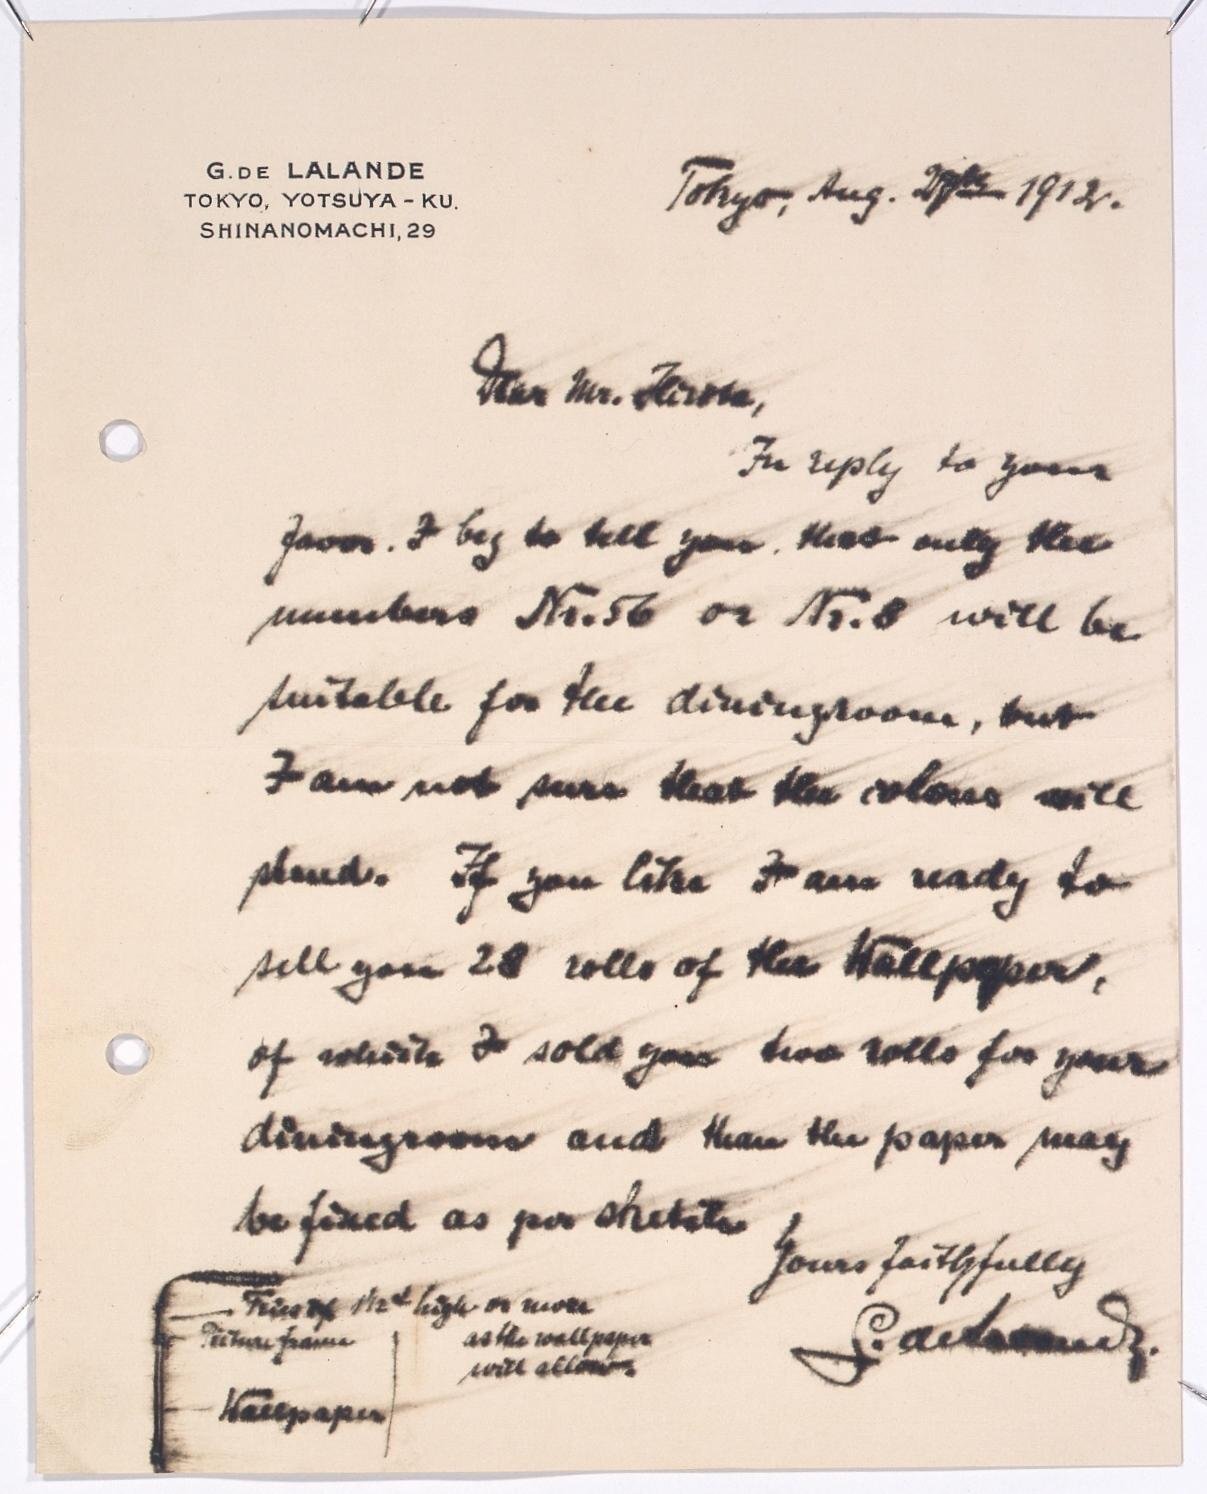 G. DE LALANDE
TOKYO, YOTSUYA - KU.
SHINANOMACHI, 29
Tokyo, Aug. 27th 1912.
Dear Mr. Hirosa,
In reply to your
favor. I beg to tell you. that only the
numbers Nr. 56 or Nr. 8 will be
suitable for the diningroom, but
I am not sure that the colour will
stand. If you like I am ready to
sell you 28 rolls of the Wallpaper,
of which I sold you two rolls for your
diningroom and than the paper may
be fixed as per sketch
Yours faithfully
G. de Lalande.
high or more
Picture frame
as the wallpaper
will allow.
Wallpaper